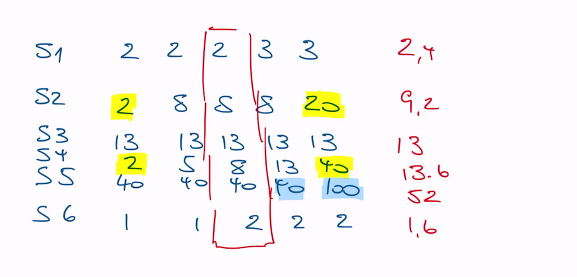 S1 2 2 2 3 3 2,4
S2 2 8 8 8 20 9,2
S3 13 13 13 13 13 13
S4 2 5 8 13 40 13.6
S5 40 40 40 40 100 52
S6 1 1 2 2 2 1,6